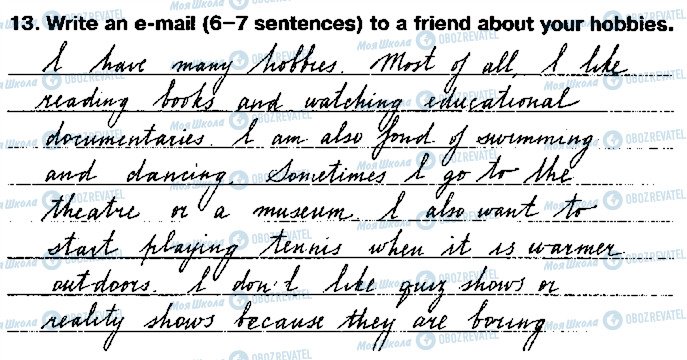 13. Write an e-mail (6–7 sentences) to a friend about your hobbies.
I have many hobbies. Most of all, I like
reading books and watching educational
documentaries. I am also fond of swimming
and dancing. Sometimes I go to the
theatre or a museum. I also want to
start playing tennis when it is warmer
outdoors. I don't like quiz shows or
reality shows because they are boring.